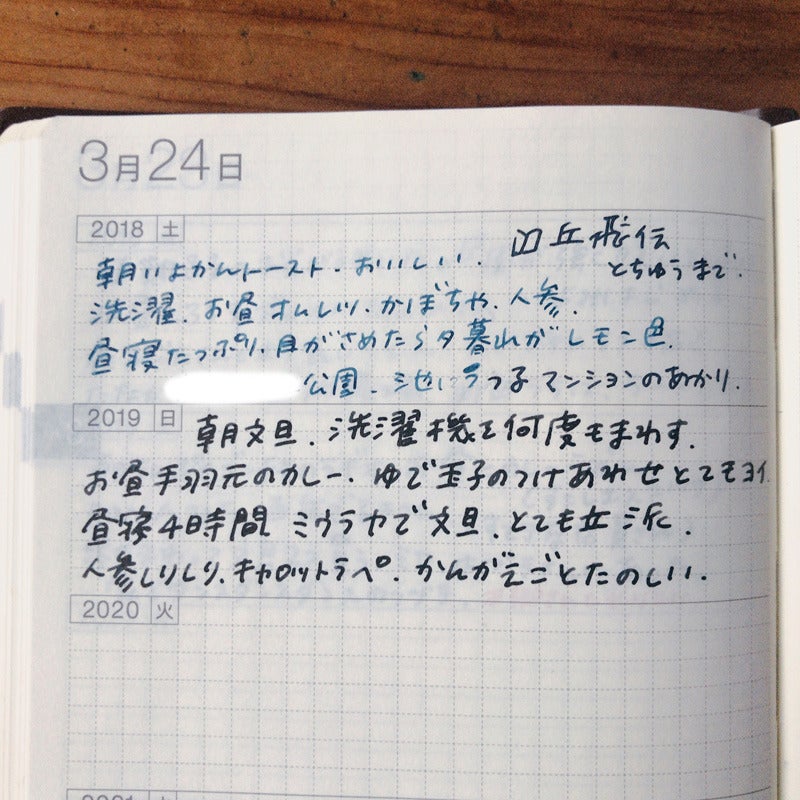 3月24日
2018 土
朝いよかんトースト. おいしい.
丘飛伝
とちゅうまで.
洗濯. お昼オムレツ. かぼちゃ. 人参.
昼寝たっぷり. 目がさめたら夕暮れがレモン色.
公園. 池にうつる マンションのあかり.
2019 日
朝文旦. 洗濯機を何度もまわす.
お昼手羽元のカレー. ゆで玉子のつけあわせとてもヨイ
昼寝4時間 ミウラヤで文旦. とても立派.
人参しりしり. キャロットラペ. かんがえごとたのしい.
2020 火